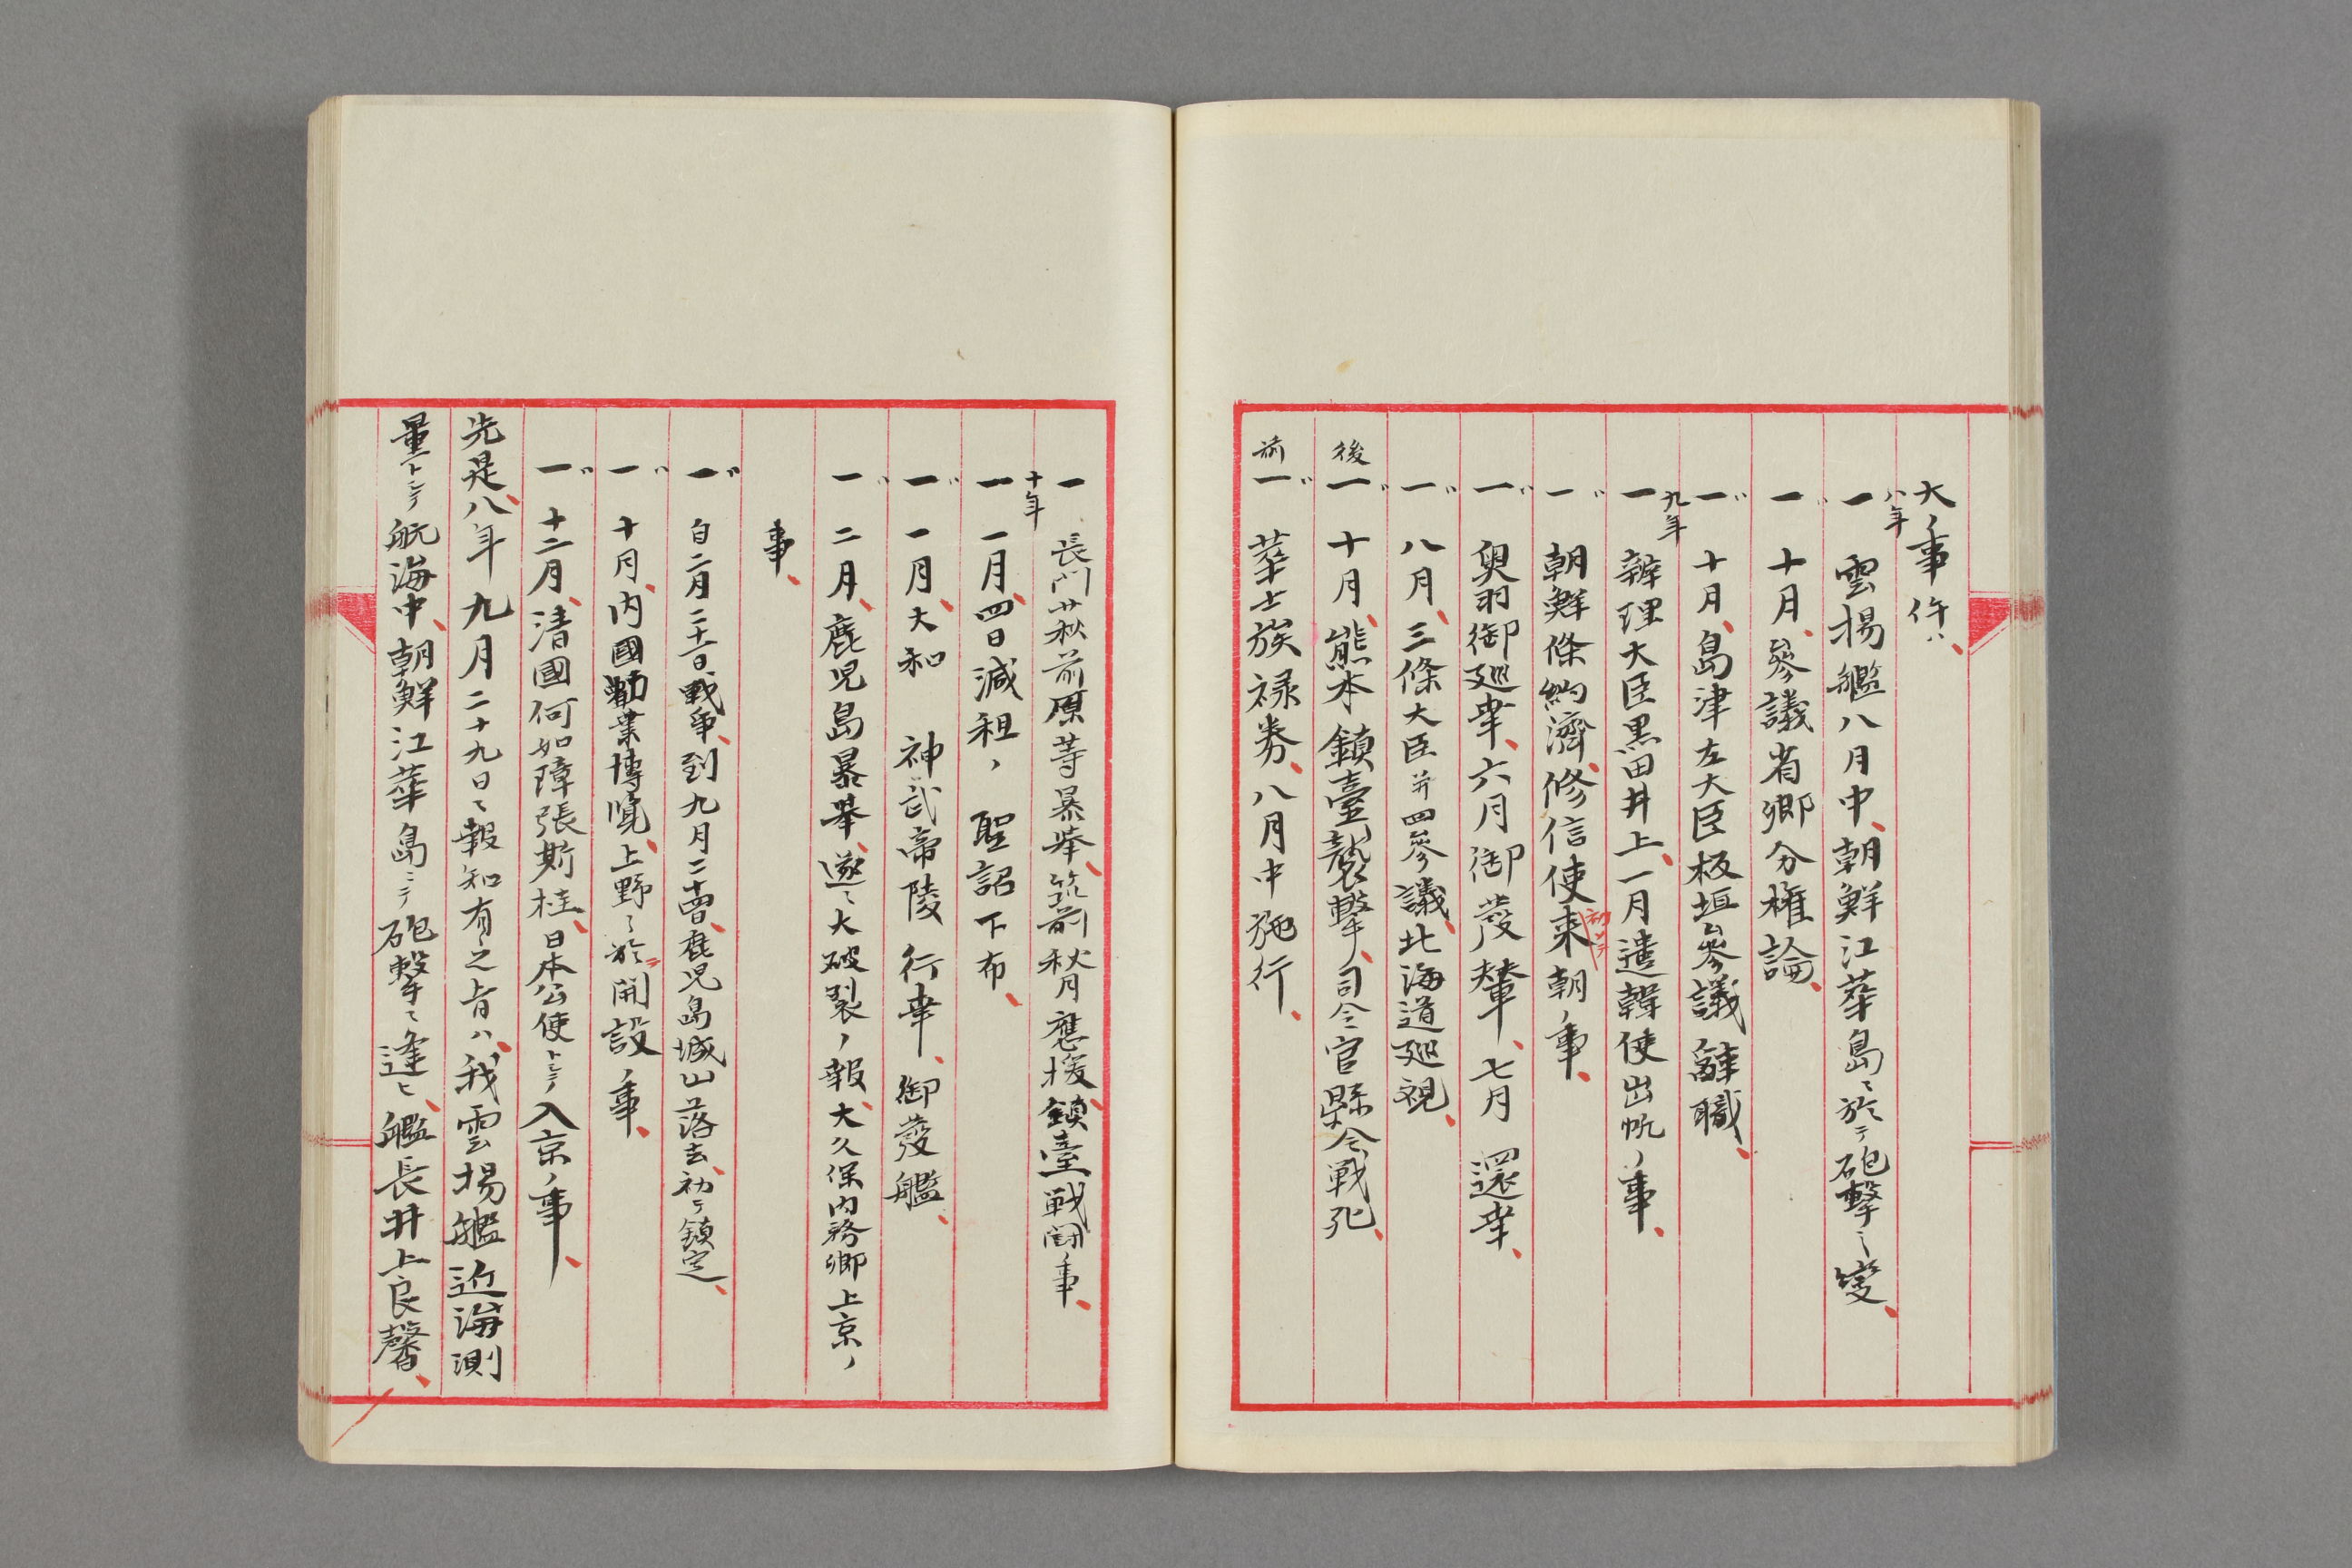 大ノ事件ハ、
八年
一 雲揚艦八月中、朝鮮江華島ニ於テ砲撃之變、
一 十月、參議省卿分權論、
一 十月、島津左大臣板垣參議辭職、
九年
一 辨理大臣黒田井上、一月遣韓使出帆ノ事、
一 朝鮮條約濟、修信使来朝ノ事、
初メテ
一 奥羽御廵幸、六月御發輦、七月還幸、
一 八月、三條大臣并四參議、北海道廵視、
後
一 十月、熊本鎮臺襲撃、司令官縣令戰死、
前
一 華士族禄券、八月中施行、
一 長門萩前原等暴挙、筑前秋月應援、鎮臺戦闘ノ事、
十年
一 一月、四日減租ノ聖詔下布、
一 一月、大和 神武帝陵行幸、御發艦、
一 二月、鹿児島暴挙、遂ニ大破裂ノ報、大久保内務卿上京ノ
事、
一 自二月二十二日戦争、到九月二十四日、鹿児島城山落去、初テ鎮定、
一 十月、内國勧業博覧、上野ニ於テ開設ノ事、
一 十二月、清國何如璋張斯桂、日本公使トシテ入京ノ事、
先是、八年九月二十九日ニ報知有之旨ハ、我雲揚艦近海測
量トシテ航海中、朝鮮江華島ニテ砲撃ニ逢ヒ、艦長井上良馨、